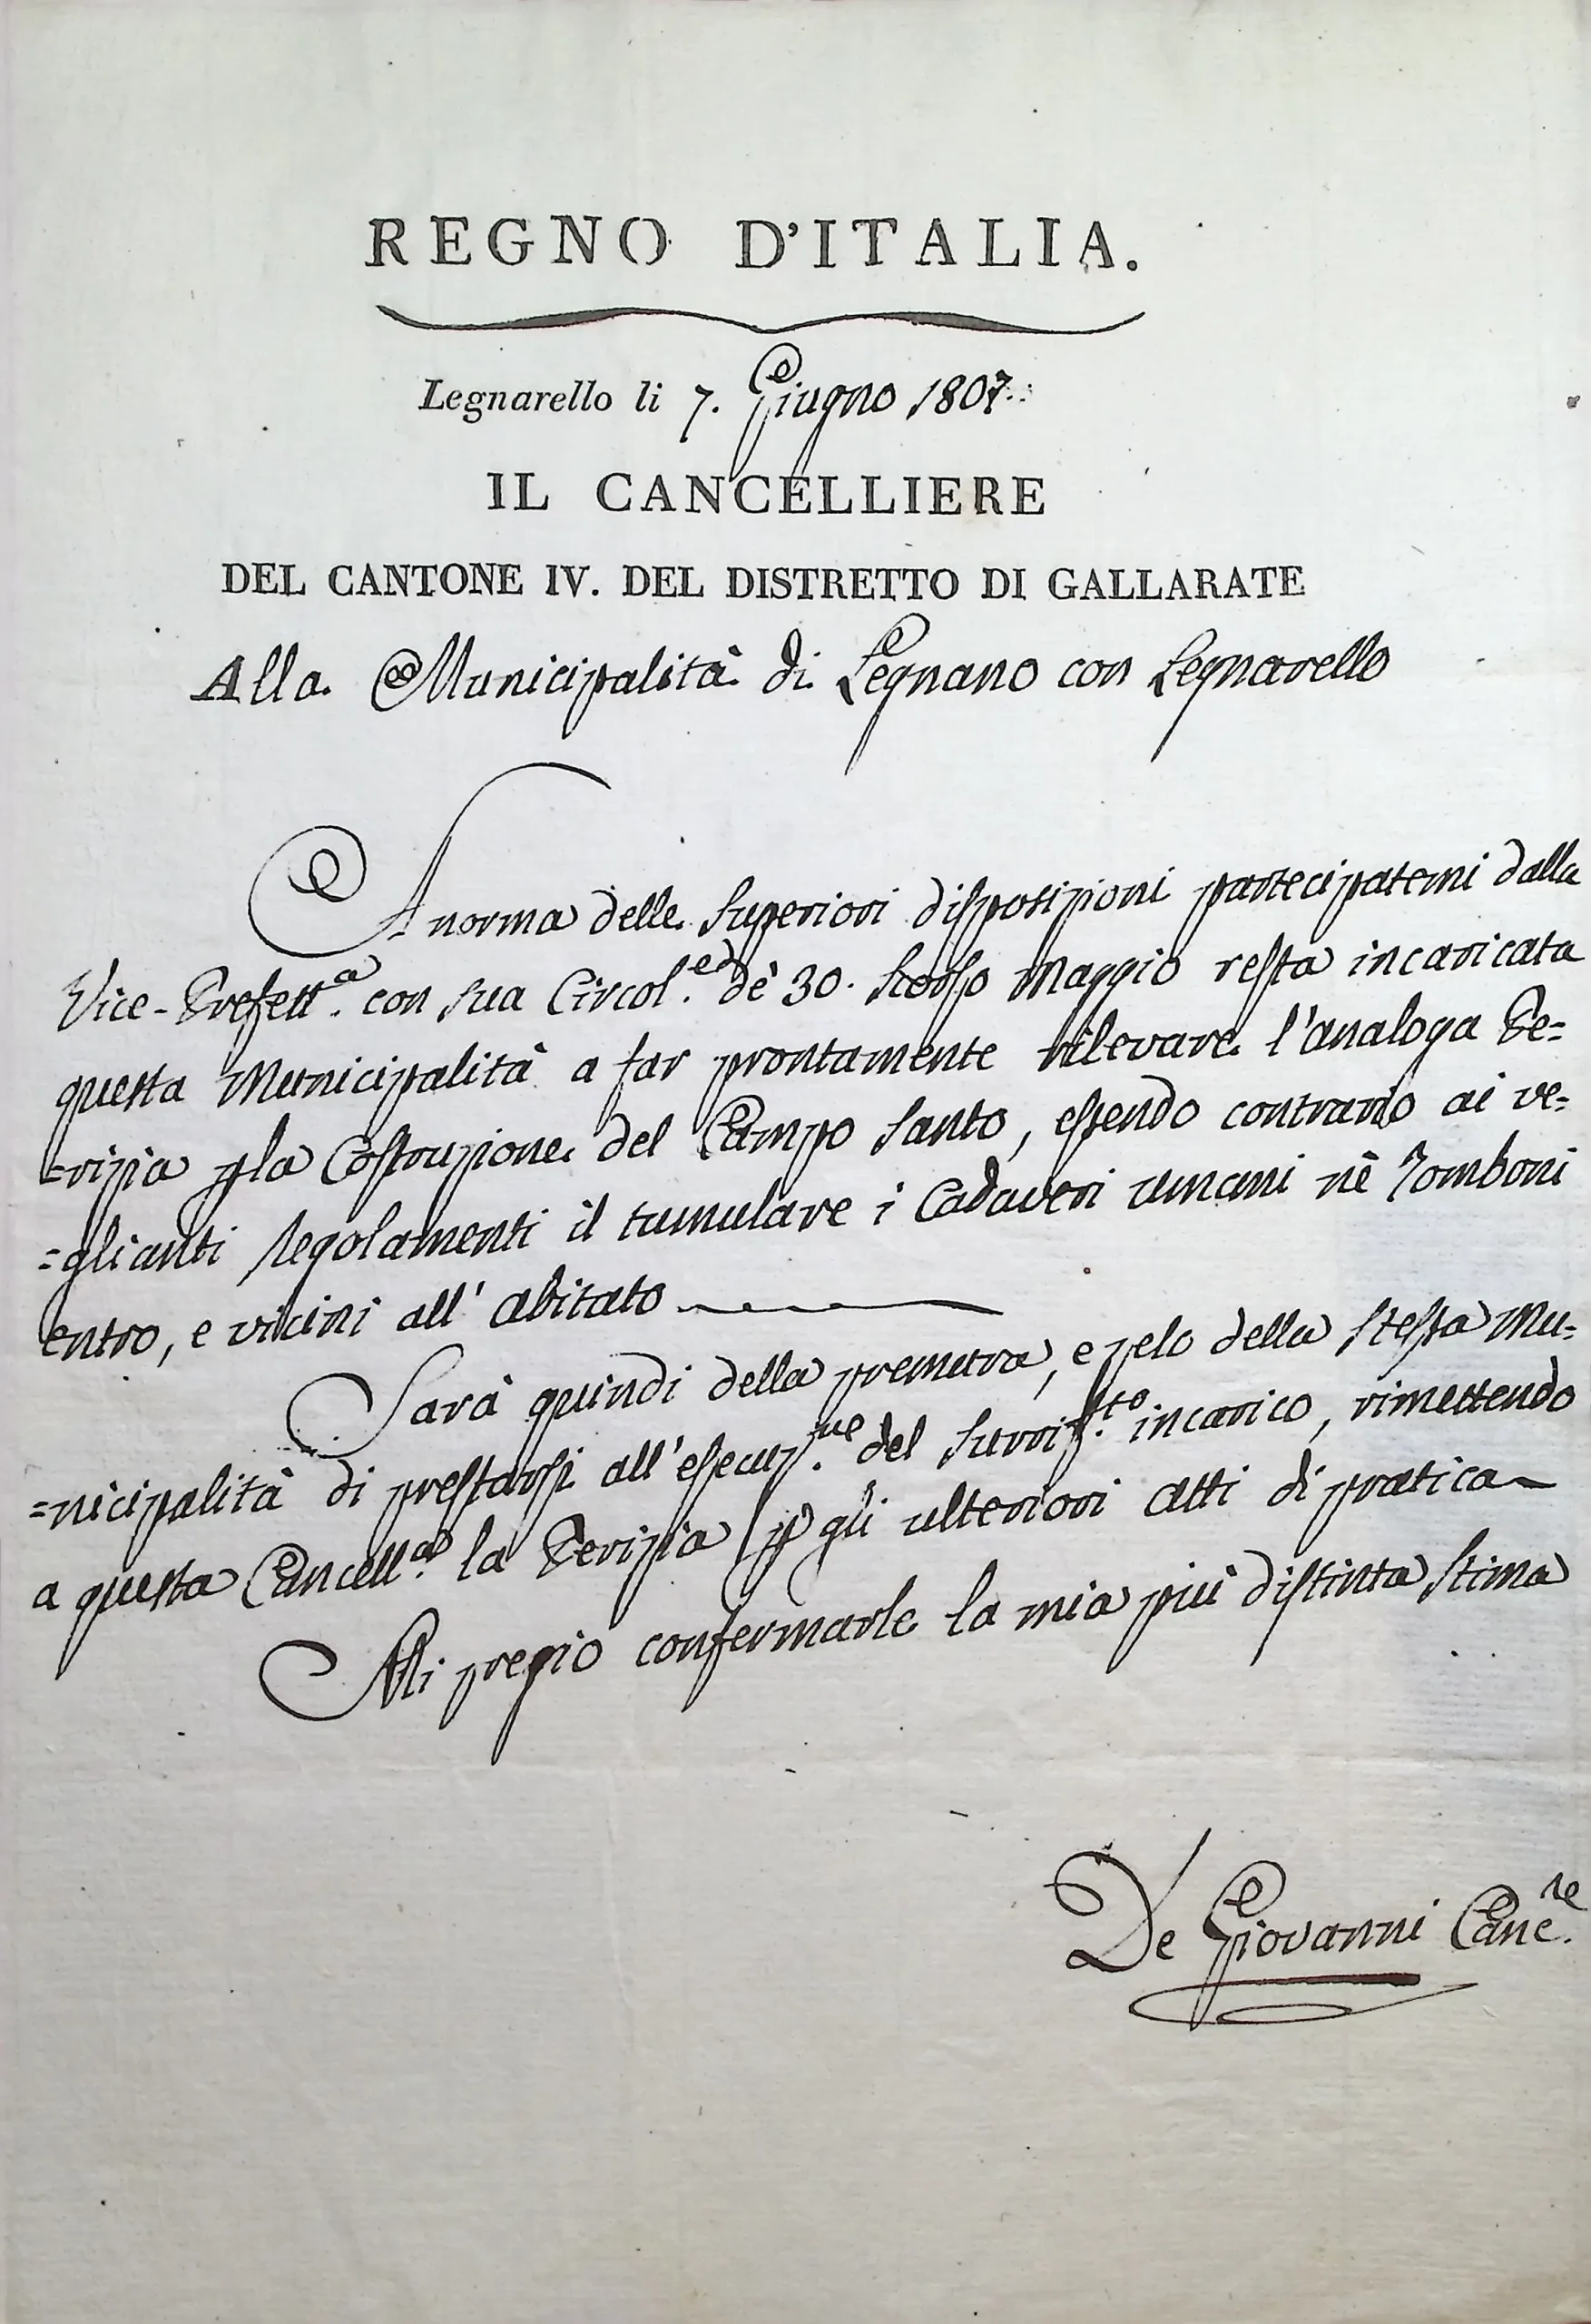 REGNO D'ITALIA.
Legnarello li 7. Giugno 1807.
IL CANCELLIERE
DEL CANTONE IV. DEL DISTRETTO DI GALLARATE
Alla Municipalità di Legnano con Legnarello
A norma delle Superiori disposizioni partecipatemi dalla
Vice-Prefett.a con sua Circol.e dè 30. Scorso Maggio resta incaricata
questa Municipalità a far prontamente rilevare l'analoga Pe=
=rizia p la Costruzione del Campo Santo, essendo contrario ai ve=
=glianti Regolamenti il tumulare i Cadaveri umani nè Tomboni
entro, e vicini all' abitato
Sarà quindi della premura, e zelo della Stessa Mu=
=nicipalità di prestarsi all'esecuz.ne del surrif.to incarico, rimettendo
a questa Cancell.a la Perizia p gli ulteriori atti di pratica
Mi pregio confermarle la mia più distinta Stima
De Giovanni Canc.re